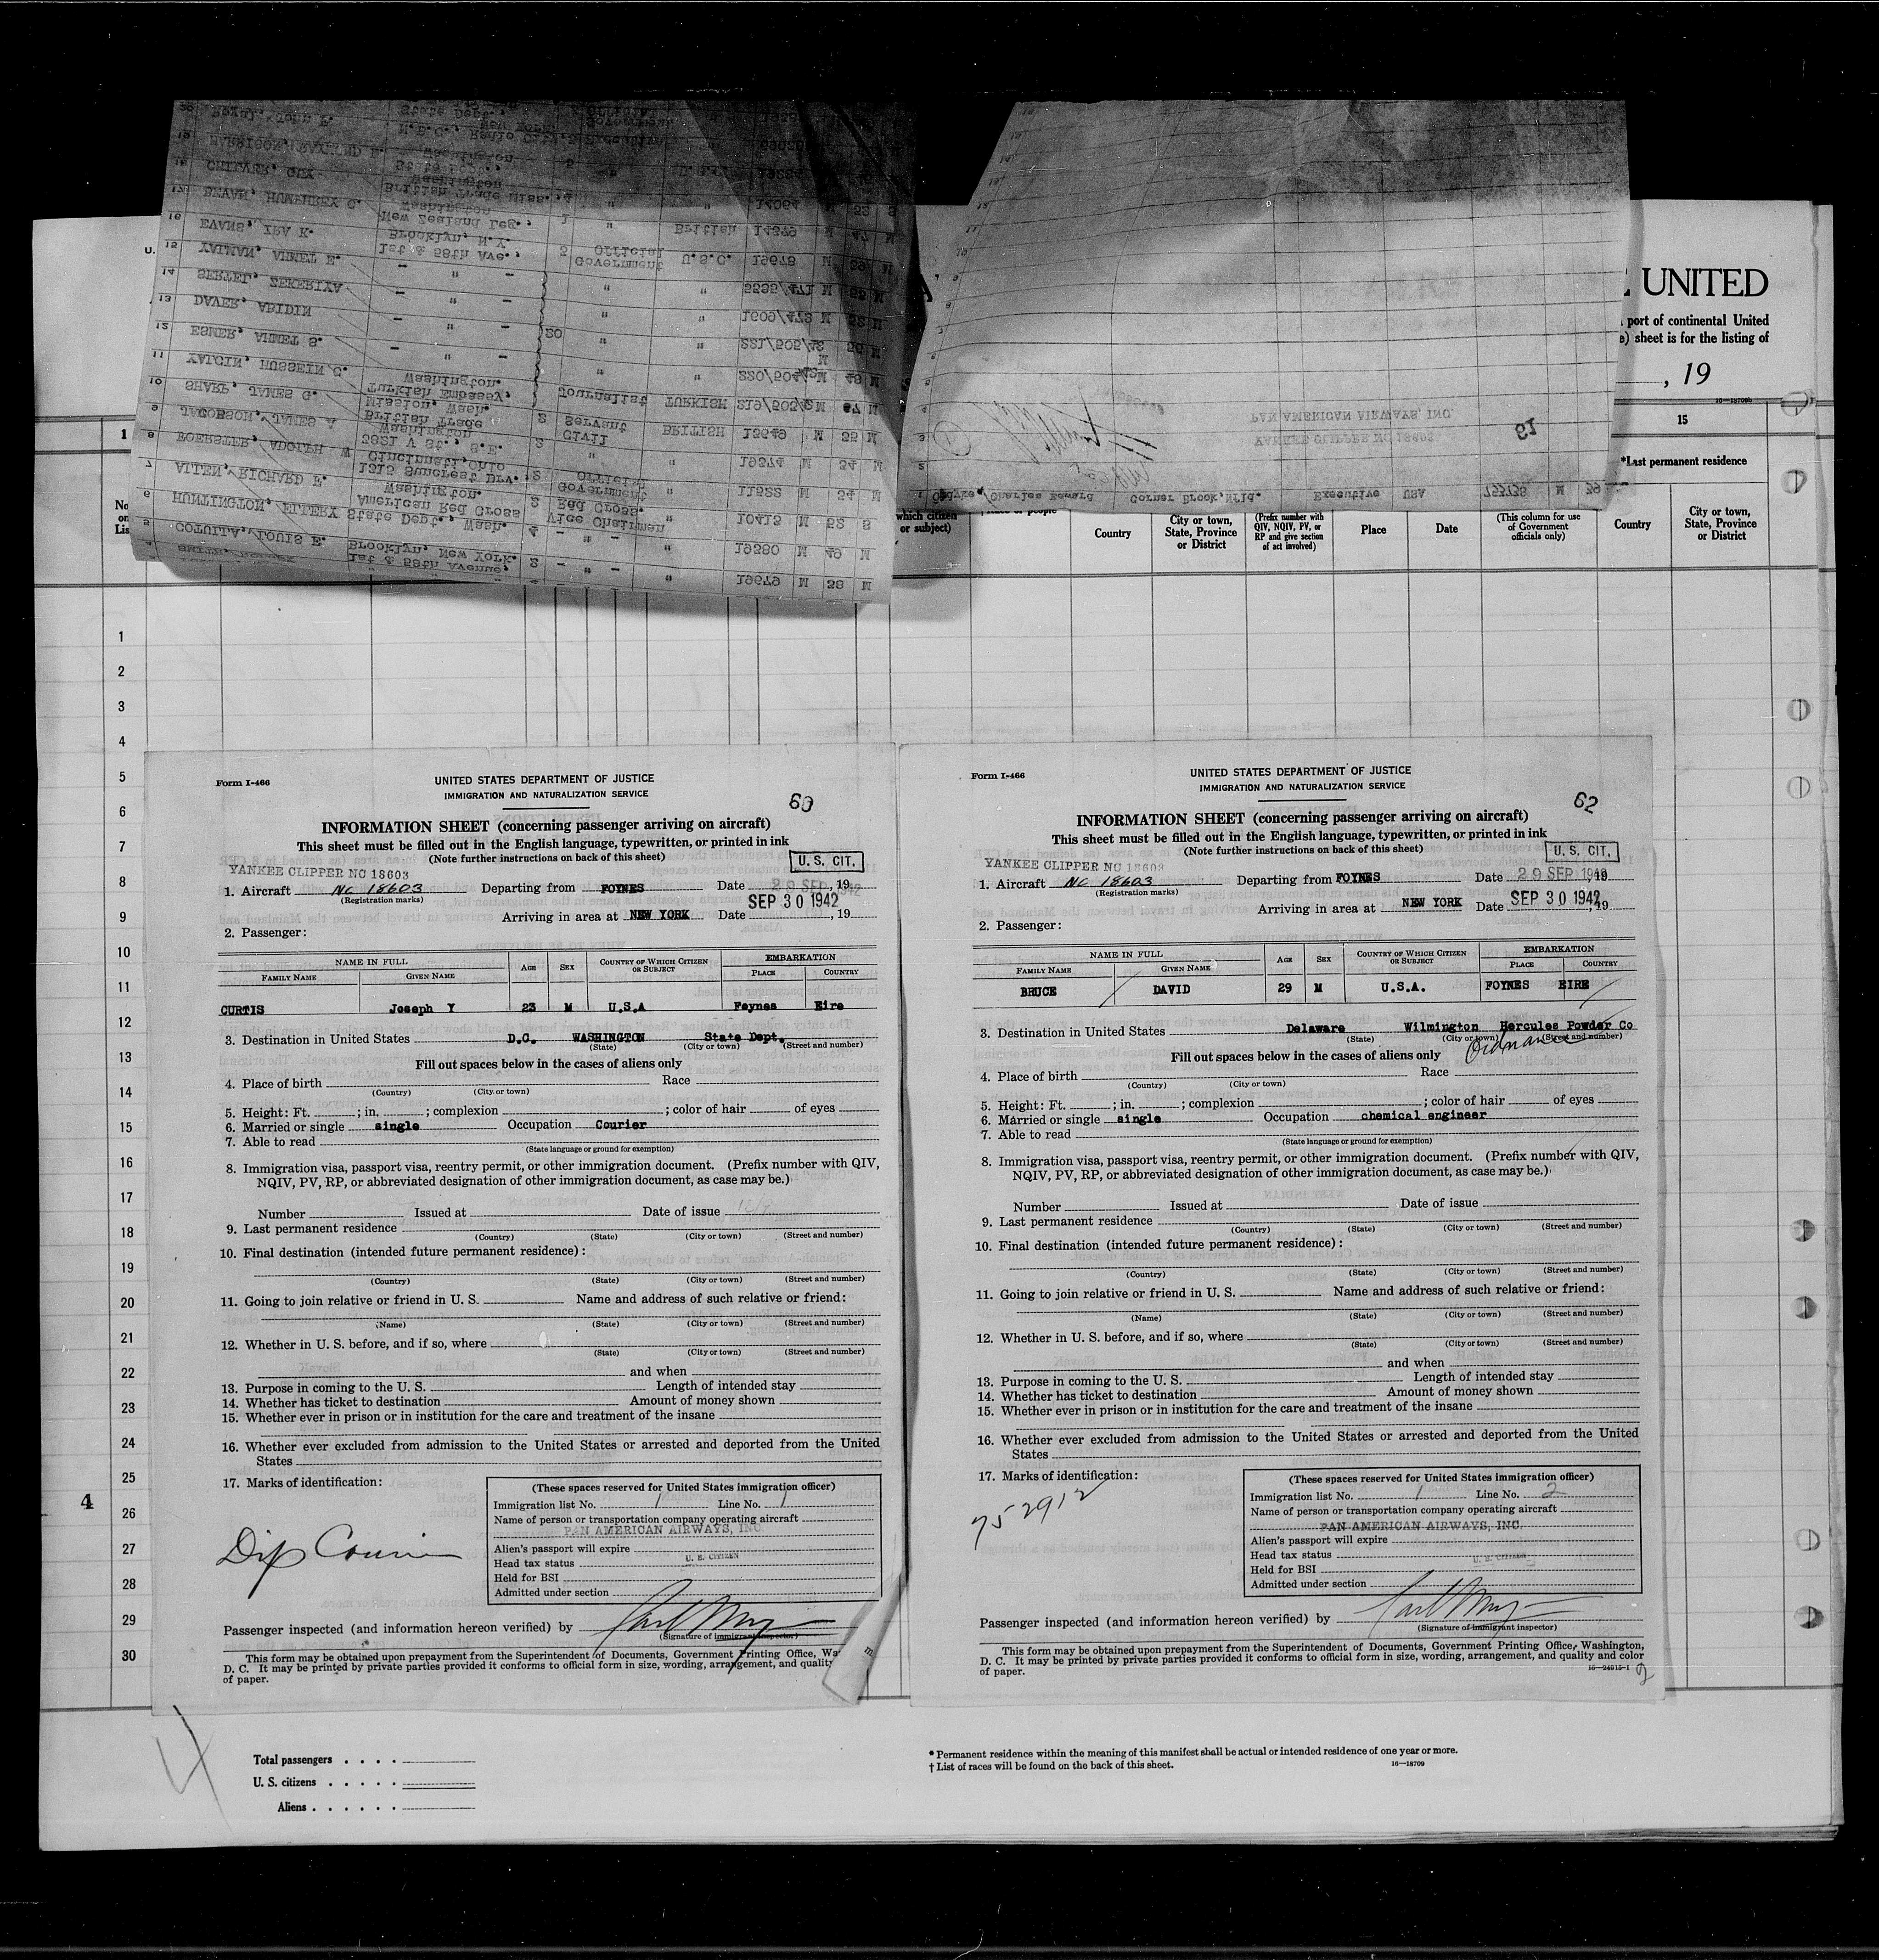 20 Royal, John F. N.B.C., Radio City,
19 HARRISON, RAYMOND L. Washington
18 State Dept., Washington U.S.C.
17 BEVAN, HUMPHREY C. British Trade Miss., Washington 4 " " 14064 M 52 S
16 EVANS, IRA K. New Zealand Leg., 1 " British 14379 M 47 M
15 YALMAN, AHMET E. 1st & 58th Ave., Brooklyn, N.Y. 3 Government Official U.S.C. 19678 M 39 M
14 SERTEL, ZEKERIYA - " - " "
13 DAVER, ABIDIN - " - " "
12 ESMER, AHMET S. - " - 20 " "
11 YALCIN, HUSSEIN C. - " - " "
10 SHARP, JAMES G. Turkish Embassy, Washington. Journalist TURKISH
9 JACOBSON, JAMES A British Trade Mission, Wash. 2 Civil Servant BRITISH 15649 M 55 M
8 FOERSTER, ADOLPH W 3821 V St., S.E. Washington 2 " " 19374 M 34 M
7 ALLEN, RICHARD E. 1315 Suncrest Drv. Cincinnati, Ohio 2 Government Official " 11522 M 34 M
6 HUNTINGTON, ELLERY American Red Cross Washington. 2 Vice Chairman Red Cross. " 10415 M 52 S
5 COTULLA, LOUIS E. State Dept., Wash. 4 - " - " 19380 M 49 M
1st & 58th Avenue, Brooklyn, New York. 2 - " - " 19679 M 38 M
PAN AMERICAN AIRWAYS, INC.
YANKEE CLIPPER NC 18603
1 Charles Edward Corner Brook, Nfld. Executive USA M 39
UNITED
port of continental United
sheet is for the listing of
, 19
16—18709b
1
15
*Last permanent residence
which citizen or subject)
Country
City or town, State, Province or District
(Prefix number with QIV, NQIV, PV, or RP and give section of act involved)
Place
Date
(This column for use of Government officials only)
Country
City or town, State, Province or District
1
2
3
4
5
6
7
8
9
10
11
12
13
14
15
16
17
18
19
20
21
22
23
24
25
4
26
27
28
29
30
Form I-466
UNITED STATES DEPARTMENT OF JUSTICE
IMMIGRATION AND NATURALIZATION SERVICE
60
INFORMATION SHEET (concerning passenger arriving on aircraft)
This sheet must be filled out in the English language, typewritten, or printed in ink
(Note further instructions on back of this sheet)
U. S. CIT.
YANKEE CLIPPER NC 18603
1. Aircraft NC 18603 Departing from FOYNES Date 29 SEP 1942, 19
(Registration marks)
SEP 30 1942
Arriving in area at NEW YORK Date , 19
2. Passenger:
NAME IN FULL
FAMILY NAME GIVEN NAME
AGE
SEX
COUNTRY OF WHICH CITIZEN OR SUBJECT
EMBARKATION
PLACE COUNTRY
CURTIS Joseph Y 23 M U.S.A Foynes Eire
3. Destination in United States D.C. WASHINGTON State Dept.
(State) (City or town) (Street and number)
Fill out spaces below in the cases of aliens only
4. Place of birth Race
(Country) (City or town)
5. Height: Ft. ; in. ; complexion ; color of hair of eyes
6. Married or single single Occupation Courier
7. Able to read
(State language or ground for exemption)
8. Immigration visa, passport visa, reentry permit, or other immigration document. (Prefix number with QIV,
NQIV, PV, RP, or abbreviated designation of other immigration document, as case may be.)
Number Issued at Date of issue
9. Last permanent residence
(Country) (State) (City or town) (Street and number)
10. Final destination (intended future permanent residence):
(Country) (State) (City or town) (Street and number)
11. Going to join relative or friend in U. S. Name and address of such relative or friend:
(Name) (State) (City or town) (Street and number)
12. Whether in U. S. before, and if so, where
(State) (City or town) (Street and number)
and when
13. Purpose in coming to the U. S. Length of intended stay
14. Whether has ticket to destination Amount of money shown
15. Whether ever in prison or in institution for the care and treatment of the insane
16. Whether ever excluded from admission to the United States or arrested and deported from the United
States
17. Marks of identification:
(These spaces reserved for United States immigration officer)
Immigration list No. 1 Line No. 1
Name of person or transportation company operating aircraft
PAN AMERICAN AIRWAYS, INC
Alien's passport will expire
Head tax status U. S. CITIZEN
Held for BSI
Admitted under section
Passenger inspected (and information hereon verified) by
(Signature of immigrant inspector)
This form may be obtained upon prepayment from the Superintendent of Documents, Government Printing Office, Wa
D. C. It may be printed by private parties provided it conforms to official form in size, wording, arrangement, and quality
of paper.
Form I-466
UNITED STATES DEPARTMENT OF JUSTICE
IMMIGRATION AND NATURALIZATION SERVICE
62
INFORMATION SHEET (concerning passenger arriving on aircraft)
This sheet must be filled out in the English language, typewritten, or printed in ink
(Note further instructions on back of this sheet)
U. S. CIT.
YANKEE CLIPPER NC 18603
1. Aircraft NC 18603 Departing from FOYNES Date 29 SEP 1942, 19
(Registration marks)
SEP 30 1942
Arriving in area at NEW YORK Date , 19
2. Passenger:
NAME IN FULL
FAMILY NAME GIVEN NAME
AGE
SEX
COUNTRY OF WHICH CITIZEN OR SUBJECT
EMBARKATION
PLACE COUNTRY
BRUCE DAVID 29 M U.S.A. FOYNES EIRE
3. Destination in United States Delaware Wilmington Hercules Powder Co
(State) (City or town) (Street and number)
Ordnance
Fill out spaces below in the cases of aliens only
4. Place of birth Race
(Country) (City or town)
5. Height: Ft. ; in. ; complexion ; color of hair of eyes
6. Married or single single Occupation chemical engineer
7. Able to read
(State language or ground for exemption)
8. Immigration visa, passport visa, reentry permit, or other immigration document. (Prefix number with QIV,
NQIV, PV, RP, or abbreviated designation of other immigration document, as case may be.)
Number Issued at Date of issue
9. Last permanent residence
(Country) (State) (City or town) (Street and number)
10. Final destination (intended future permanent residence):
(Country) (State) (City or town) (Street and number)
11. Going to join relative or friend in U. S. Name and address of such relative or friend:
(Name) (State) (City or town) (Street and number)
12. Whether in U. S. before, and if so, where
(State) (City or town) (Street and number)
and when
13. Purpose in coming to the U. S. Length of intended stay
14. Whether has ticket to destination Amount of money shown
15. Whether ever in prison or in institution for the care and treatment of the insane
16. Whether ever excluded from admission to the United States or arrested and deported from the United
States
17. Marks of identification:
752912
(These spaces reserved for United States immigration officer)
Immigration list No. 1 Line No. 2
Name of person or transportation company operating aircraft
PAN AMERICAN AIRWAYS, INC.
Alien's passport will expire
Head tax status U. S. CITIZEN
Held for BSI
Admitted under section
Passenger inspected (and information hereon verified) by
(Signature of immigrant inspector)
This form may be obtained upon prepayment from the Superintendent of Documents, Government Printing Office, Washington,
D. C. It may be printed by private parties provided it conforms to official form in size, wording, arrangement, and quality and color
of paper.
16—24915-1
2
Total passengers
U. S. citizens
Aliens
* Permanent residence within the meaning of this manifest shall be actual or intended residence of one year or more.
† List of races will be found on the back of this sheet.
16—18709